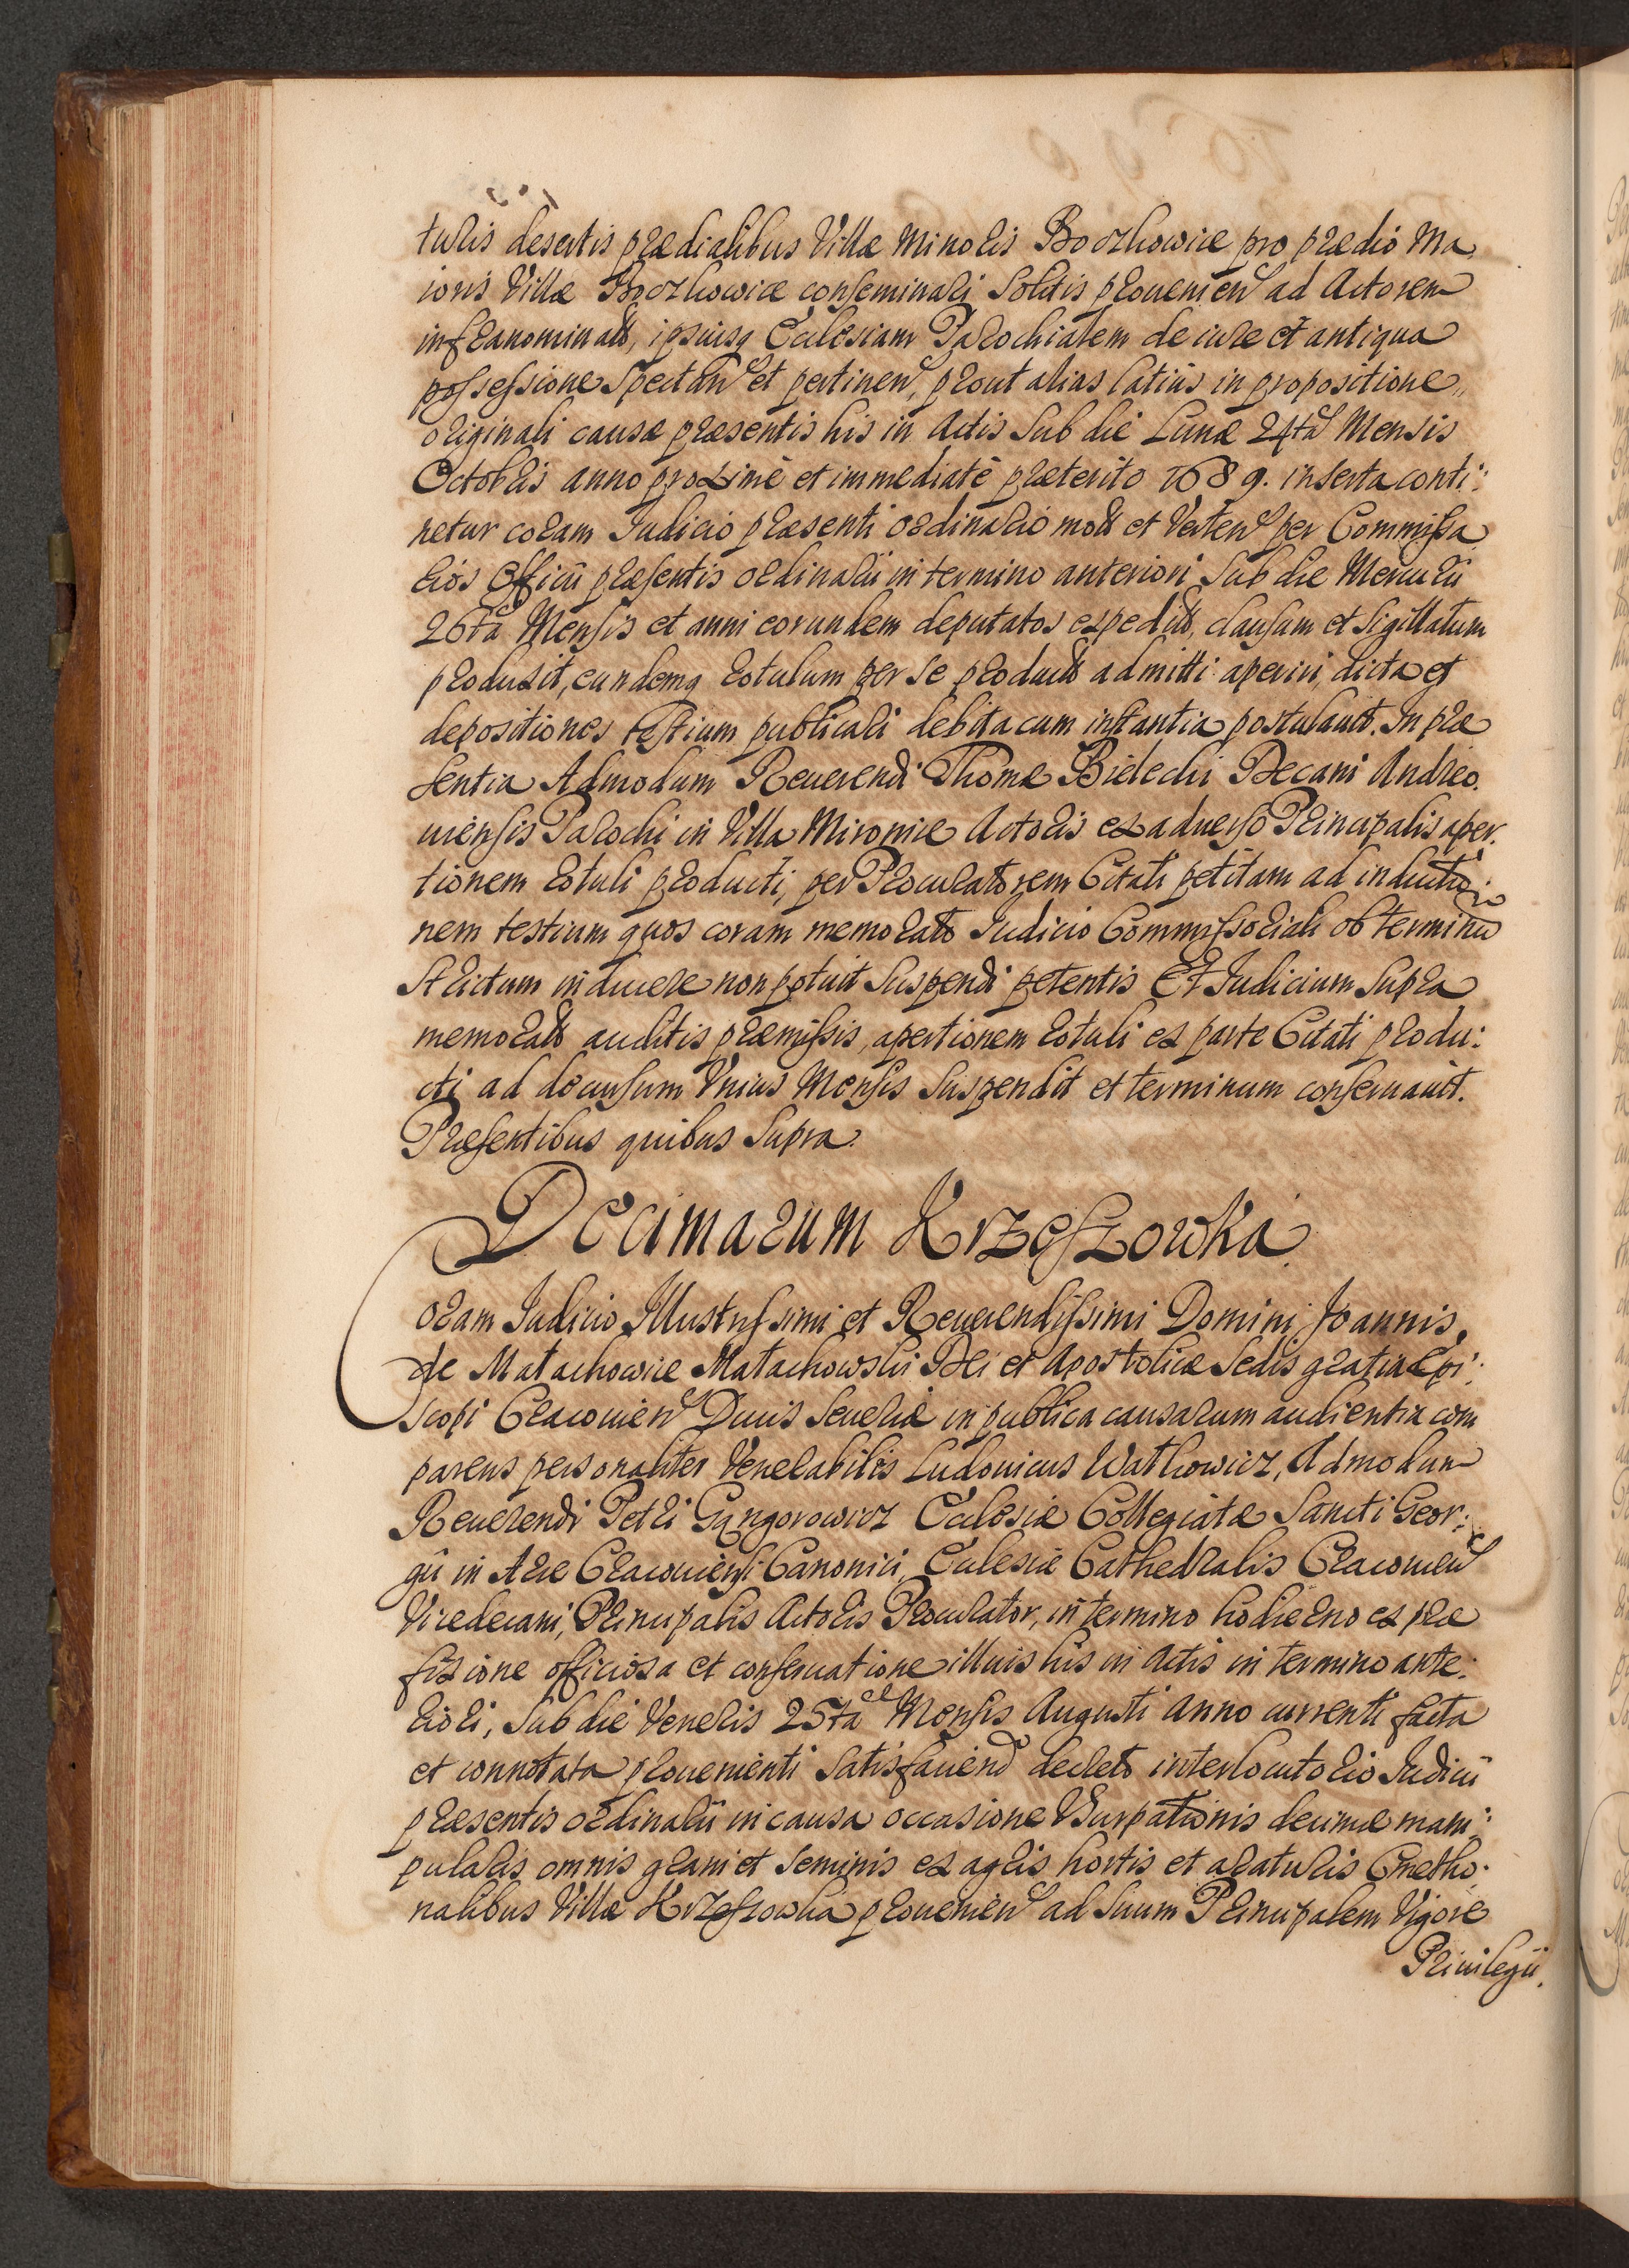 turis desertis prædialibus Villæ Minoris Boczkowice pro prædio Ma,
ioris Villæ Boczkowice conseminari Solitis prouenien ad Actorem
infranominatt, ipsiusq Ecclesiam Parochialem de iure et antiqua
possessione Spectan et pertinen, prout alias latius in propositione,,
originali causæ præsentis his in Actis Sub die Lunæ 24ta Mensis
Octobris anno proximè et immediatè præterito 1689. inserta conti:
netur coram Iudicio præsenti ordinario mott et Verten per Commissa
rios Officii præsentis ordinarii in termino anteriori Sub die Mercurii
26ta Mensis et anni eorundem deputatos expeditt, clausum et Sigillatum
produxit, eundemq rotulum per Se productt admitti aperiri, dicta et
depositiones testium publicari debita cum instantia postulauit. In præ
sentia Admodum Reuerendi Thomæ Bielecki Decani Andreo.
uiensis Parochi in Villa Mironice Actoris ex aduerso Principalis aper.
tionem rotuli producti, per Procuratorem Citati petitam ad inductio
nem testium quos coram memorato Iudicio Commissoriali ob terminũ
Strictum inducere non potuit Suspendi petentis Et Iudicium Supra
memoratt auditis præmissis, apertionem rotuli ex parte Citati produ:
cti ad decursum Vnius Mensis Suspendit et terminum conseruauit.
Præsentibus quibus Supra.
Decimarum Krzeszowka.
Coram Iudicio Illustrissimi et Reuerendissimi Domini Joannis,
de Małachowice Małachowski Dei et Apostolicæ Sedis gratia Epi:
scopi Cracouien Ducis Seueriæ in publica causarum audientia com
parens personaliter Venerabilis Ludouicus Watkowicz, Admodum
Reuerendi Petri Gryzgorowicz Ecclesiæ Collegiatæ Sancti Geor:
gii in Arce Cracouiensi Canonici, Ecclesiæ Cathedralis Cracouien
Vicedecani, Principalis Actoris Procurator, in termino hodierno ex præ
fixione officiosa et conseruatione illius his in Actis in termino ante:
riori, Sub die Veneris 25ta Mensis Augusti Anno currenti facta
et connotata prouenienti Satisfaciend decreto interlocutorio Iudicii
præsentis ordinarii in causa occasione Vsurpationis decimæ mani:
pularis omnis grani et Seminis ex agris hortis et araturis Cmetho.
nalibus Villæ Krzeszowka prouenien ad Suum Principalem Vigore
Priuilegii.